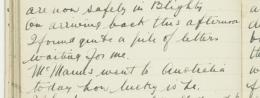 are now safely in Blighty
On arriving back this afternoon
I found quite a pile of letters
waiting for me.
Mc Manus went to Australia
today how lucky is he.